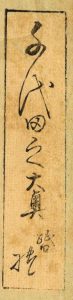 千代田之大奥